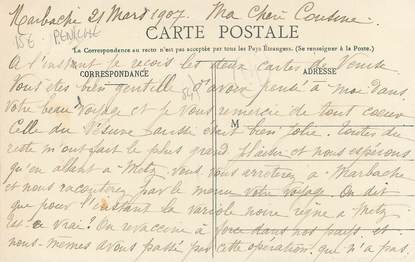 Marbache 21 Mars 1907. Ma Chère Cousine.
15€ PENICHE
CARTE POSTALE
La Correspondance au recto n'est pas acceptée par tous les Pays Étrangers. (Se renseigner à la Poste.)
CORRESPONDANCE
ADRESSE
M
A l'instant je reçois les deux cartes de Venise
Vous êtes bien gentille d'avoir pensé à moi dans
votre beau voyage et je vous remercie de tout coeur
Celle du Vésuve aussi était bien jolie. Toutes du
reste m'ont fait le plus grand plaisir et nous espérons
qu'en allant à Metz vous vous arrêterez à Marbache
et nous raconterez par le menu votre voyage. On dit
que pour l'instant la variole noire règne à Metz
est-ce vrai? On revaccine à force dans nos pays et
nous-mêmes avons passé par cette opération qui n'a pas